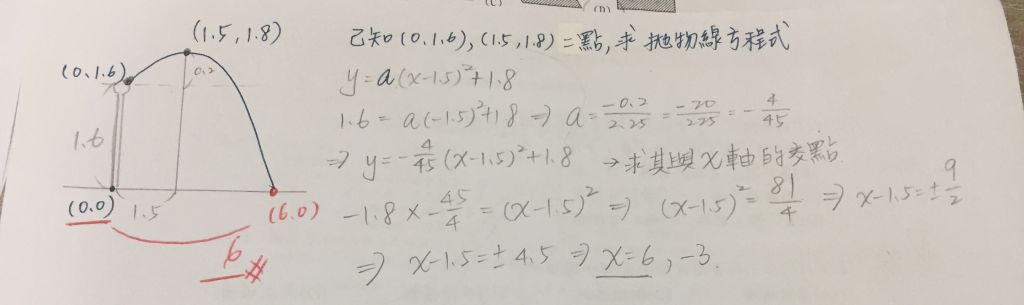 (1.5,1.8)
(0,1.6)
0.2
1.6
(0.0)
1.5
(6.0)
6#
已知(0,1.6),(1.5,1.8)二點,求拋物線方程式
y=a(x-1.5)²+1.8
1.6=a(-1.5)²+1.8⇒a=\frac{-0.2}{2.25}=\frac{-20}{225}=-\frac{4}{45}
⇒y=-\frac{4}{45}(x-1.5)²+1.8 →求其與x軸的交點
-1.8×-\frac{45}{4}=(x-1.5)²⇒(x-1.5)²=\frac{81}{4}⇒x-1.5=±\frac{9}{2}
⇒x-1.5=±4.5⇒x=6,-3.